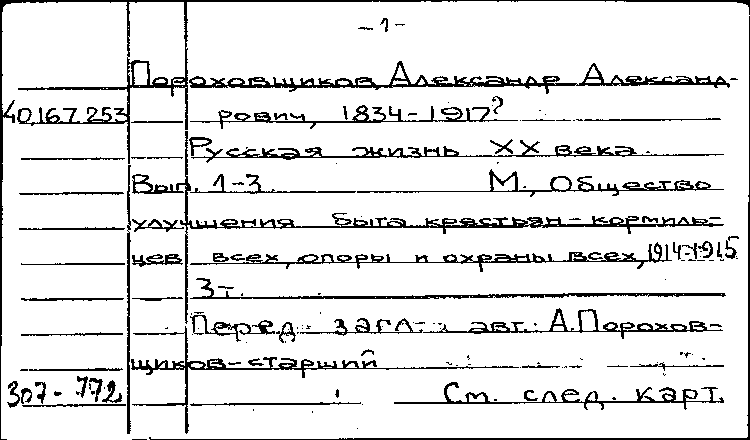 -1-
Пороховщиков, Александр Александ-
40.167.253 рович, 1834-1917?
Русская жизнь XX века.
Вып. 1-3 М., Общество
улучшения быта крестьян-кормиль-
цев всех, опоры и охраны всех, 1914-1915
3т.
Перед загл. авт.: А.Порохов-
щиков-старший
307-772 См. след. карт.